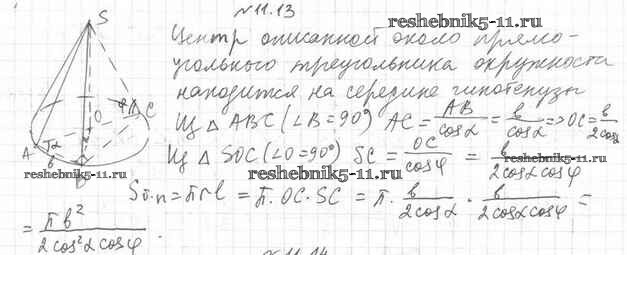 №11.13
reshebnik5-11.ru
S
Центр описанной около прямо-
угольного треугольника окружности
находится на середине гипотенузы
Из △ABC (∠B=90°) AC = AB/cosα = b/cosα => OC = b/2cosα
O φ C
A α b B
Из △SOC (∠O=90°) SC = OC/cosφ = b/2cosα cosφ
reshebnik5-11.ru
reshebnik5-11.ru
Sб.п = πrl = π·OC·SC = π · b/2cosα · b/2cosα cosφ =
= πb²/2cos²α cosφ.
№11.14